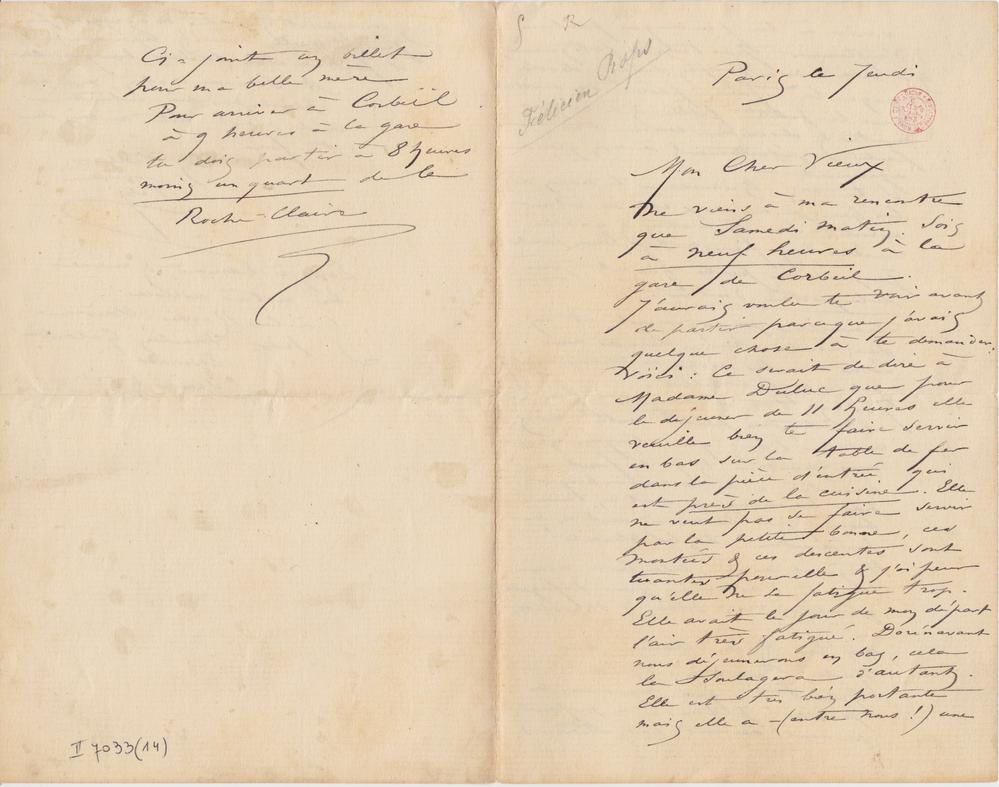 Ci-joint un billet
pour ma belle mère
Pour arriver à Corbeil
à 9 heures à la gare
tu dois partir à 8 heures
moins un quart de la
Roche-Claire
II 7033(14)
S R
Félicien Rops
Paris le Jeudi
Mon Cher Vieux
Ne viens à ma rencontre
que Samedi matin. Sois
à neuf heures à la
gare de Corbeil.
J'aurais voulu te voir avant
de partir parceque j'avais
quelque chose à te demander.
Voici : Ce serait de dire à
Madame Duluc que pour
le déjeuner de 11 heures elle
veuille bien te faire servir
en bas sur la table de fer
dans la pièce d'entrée qui
est près de la cuisine. Elle
ne veut pas se faire servir
par la petite bonne, ces
montées & ces descentes sont
tuantes pour elle & j'ai peur
qu'elle ne se fatigue trop.
Elle avait le jour de mon départ
l'air très fatigué. Dorénavant
nous déjeunerons en bas, cela
la soulagera d'autant.
Elle est très bien portante
mais elle a -(entre nous !) une